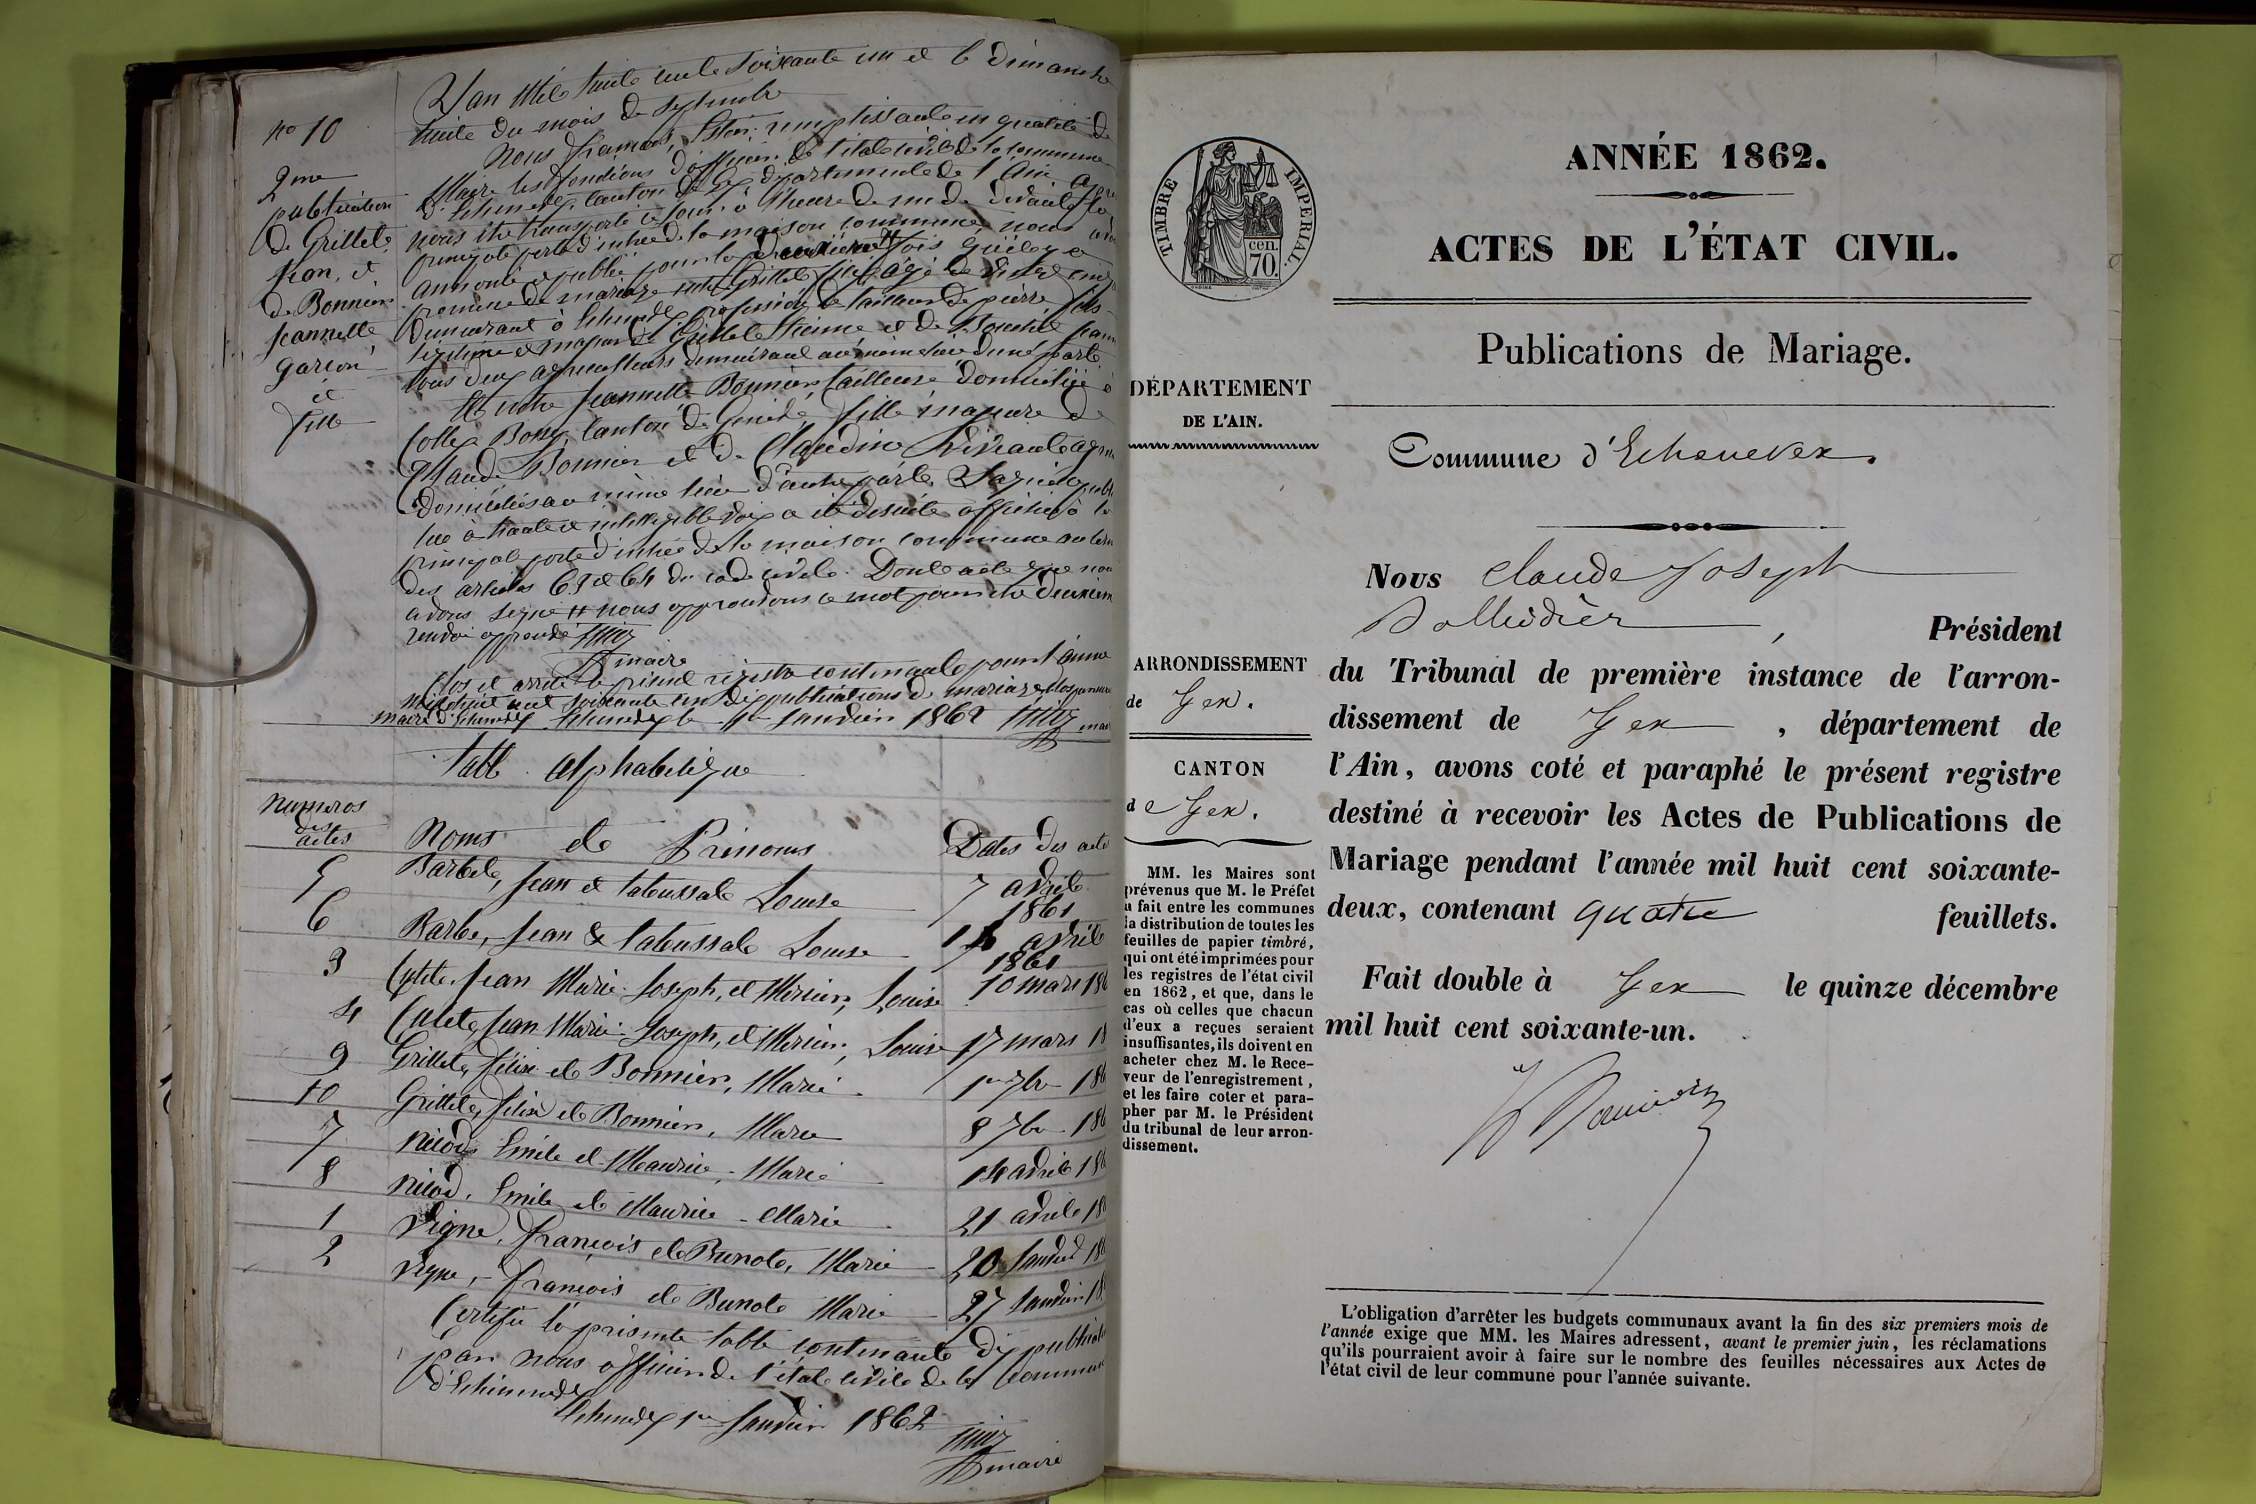 L'an mil huit cent soixante un et le dimanche
huit du mois de septembre
Nous François, remplissant en qualité de
Maire les fonctions d'officier de l'état civil de la commune
d'Echenevex canton de Gex département de l'Ain
nous étant transporté ce jour à l'heure de midi devant la
principale porte d'entrée de la maison commune, nous avons
annoncé et publié pour la deuxième fois qu'il y a
promesse de mariage entre Grillet âgé de
demeurant à Echenevex profession de tailleur de pierre fils
légitime et majeur de Grillet Etienne et de
tous deux agriculteurs demeurant au même lieu d'une part
Et entre Jeannette Bonnier, tailleuse domiciliée à
Collex Bossy, canton de Genève, fille majeure de
Claude Bonnier et de Claudine
domiciliés au même lieu d'autre part. Laquelle
lue à haute et intelligible voix a été de suite affichée à la
principale porte d'entrée de la maison commune
des articles 63 et 64 du code civil. Dont acte que nous
avons signé # nous approuvons le mot deuxième
renvoi approuvé
maire
Clos et arrêté le présent registre contenant pour l'année
mil huit cent soixante un dix publications de mariage
maire d'Echenevex Echenevex le 1er Janvier 1862
no 10
2me
publication
de Grillet
Jean, et
de Bonnier
Jeannette
garçon
et
fille
Table alphabétique
Numeros des actes Noms et Prénoms Dates des actes
5 Barbet, Jean et Louise 7 avril 1861
6 Barbe, Jean & Louise 14 avril 1861
3 Jean Marie Joseph, et Mercier, Louise 10 mars 186
4 Jean Marie Joseph, et Mercier, Louise 17 mars 18
9 Grillet, Félix et Bonnier, Marie 1er 7bre 186
10 Grillet, Félix et Bonnier, Marie 8 7bre 186
7 Nicod, Emile et Maurice, Marie 14 avril 186
8 Nicod, Emile et Maurice Marie 21 avril 18
1 Vigne, François et Marie 20 Janvier 186
2 Vigne, François et Marie 27 Janvier 18
Certifié la présente table contenant dix publications
par nous officier de l'état civil de la Commune
d'Echenevex
Echenevex 1er Janvier 1862
maire
TIMBRE IMPERIAL.
cen.
70.
DÉPARTEMENT
DE L'AIN.
ARRONDISSEMENT
de Gex.
CANTON
de Gex.
MM. les Maires sont
prévenus que M. le Préfet
a fait entre les communes
la distribution de toutes les
feuilles de papier timbré,
qui ont été imprimées pour
les registres de l'état civil
en 1862, et que, dans le
cas où celles que chacun
d'eux a reçues seraient
insuffisantes, ils doivent en
acheter chez M. le Rece-
veur de l'enregistrement,
et les faire coter et para-
pher par M. le Président
du tribunal de leur arron-
dissement.
ANNÉE 1862.
ACTES DE L'ÉTAT CIVIL.
Publications de Mariage.
Commune d'Echenevex.
Nous Claude Joseph
, Président
du Tribunal de première instance de l'arron-
dissement de Gex , département de
l'Ain, avons coté et paraphé le présent registre
destiné à recevoir les Actes de Publications de
Mariage pendant l'année mil huit cent soixante-
deux, contenant quatre feuillets.
Fait double à Gex le quinze décembre
mil huit cent soixante-un.
L'obligation d'arrêter les budgets communaux avant la fin des six premiers mois de
l'année exige que MM. les Maires adressent, avant le premier juin, les réclamations
qu'ils pourraient avoir à faire sur le nombre des feuilles nécessaires aux Actes de
l'état civil de leur commune pour l'année suivante.